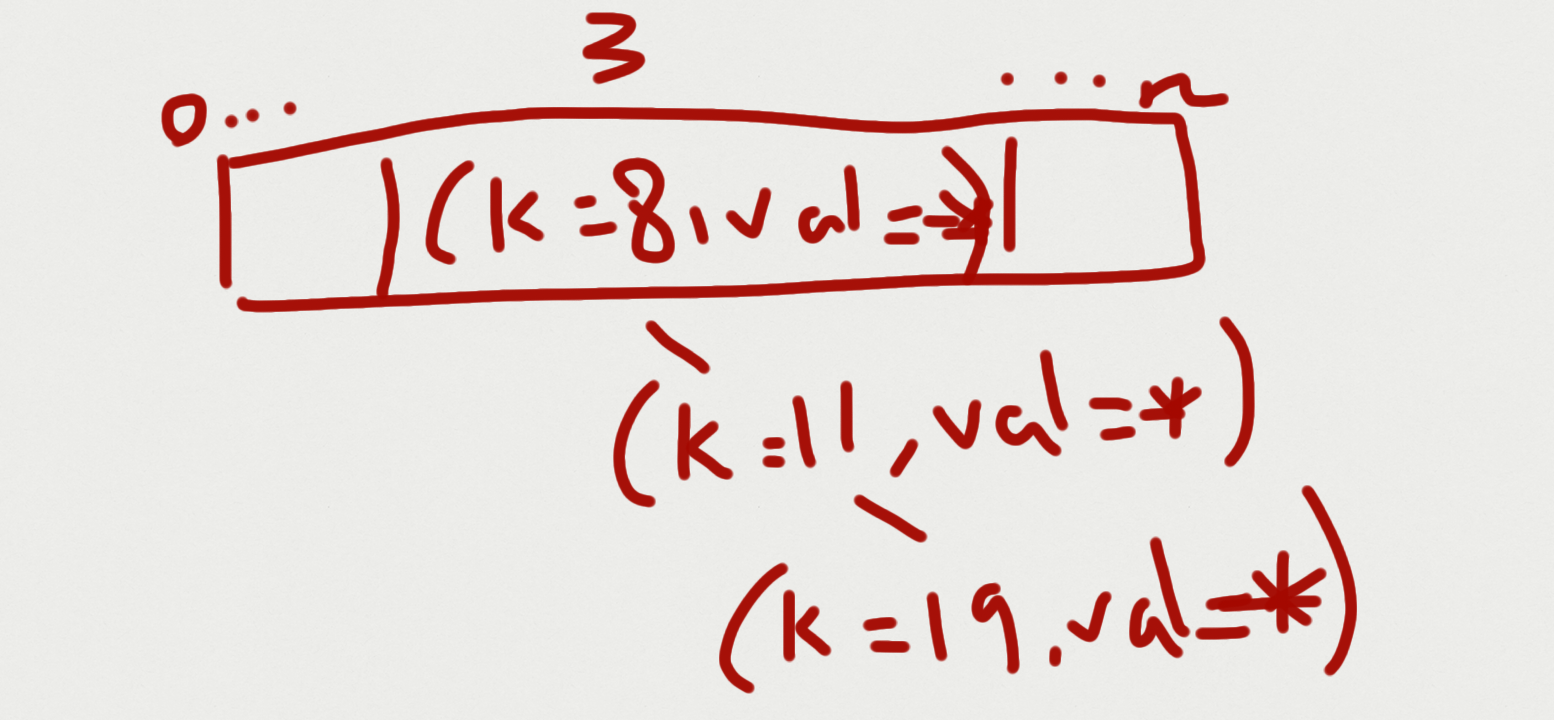 3
0... ...n
(k=8, val=*)
(k=11, val=*)
(k=19, val=*)